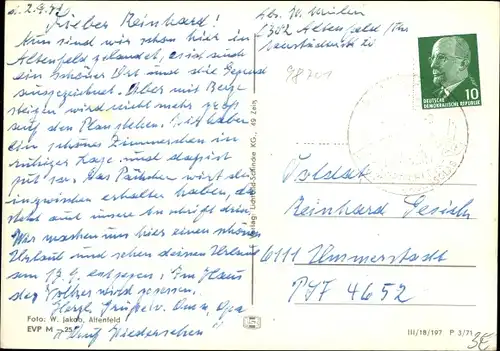 d. 2.9.72
Lieber Reinhard!
Nun sind wir schon hier in
Altenfeld gelandet, es ist
ein schöner Ort und die Gegend
ausgezeichnet. Aber mit Berge
steigen wird nicht mehr groß
auf dem Plan stehen. Wir haben
ein schönes Zimmerchen in
ruhiger Lage und das ist
gut so. Das Päckchen wirst du
inzwischen erhalten haben, da
steht auch unsere Anschrift drin.
Wir machen uns hier einen schönen
Urlaub und sehen deinen Urlaub
am 13.9. entgegen. Im Haus
der wird gegessen.
Herzl. Grüße v. Oma, Opa
Auf Wiedersehen
Foto: W. Jakob, Altenfeld
EVP M -,25
Verlag: Lichtbild-Schincke KG., 49 Zeitz
Abs. W.
6302 Altenfeld/Thür.
10
DEUTSCHE
DEMOKRATISCHE REPUBLIK
Soldat
Reinhard Gesich
6111 Ummerstadt
PSF 4652
III/18/197 P 3/71